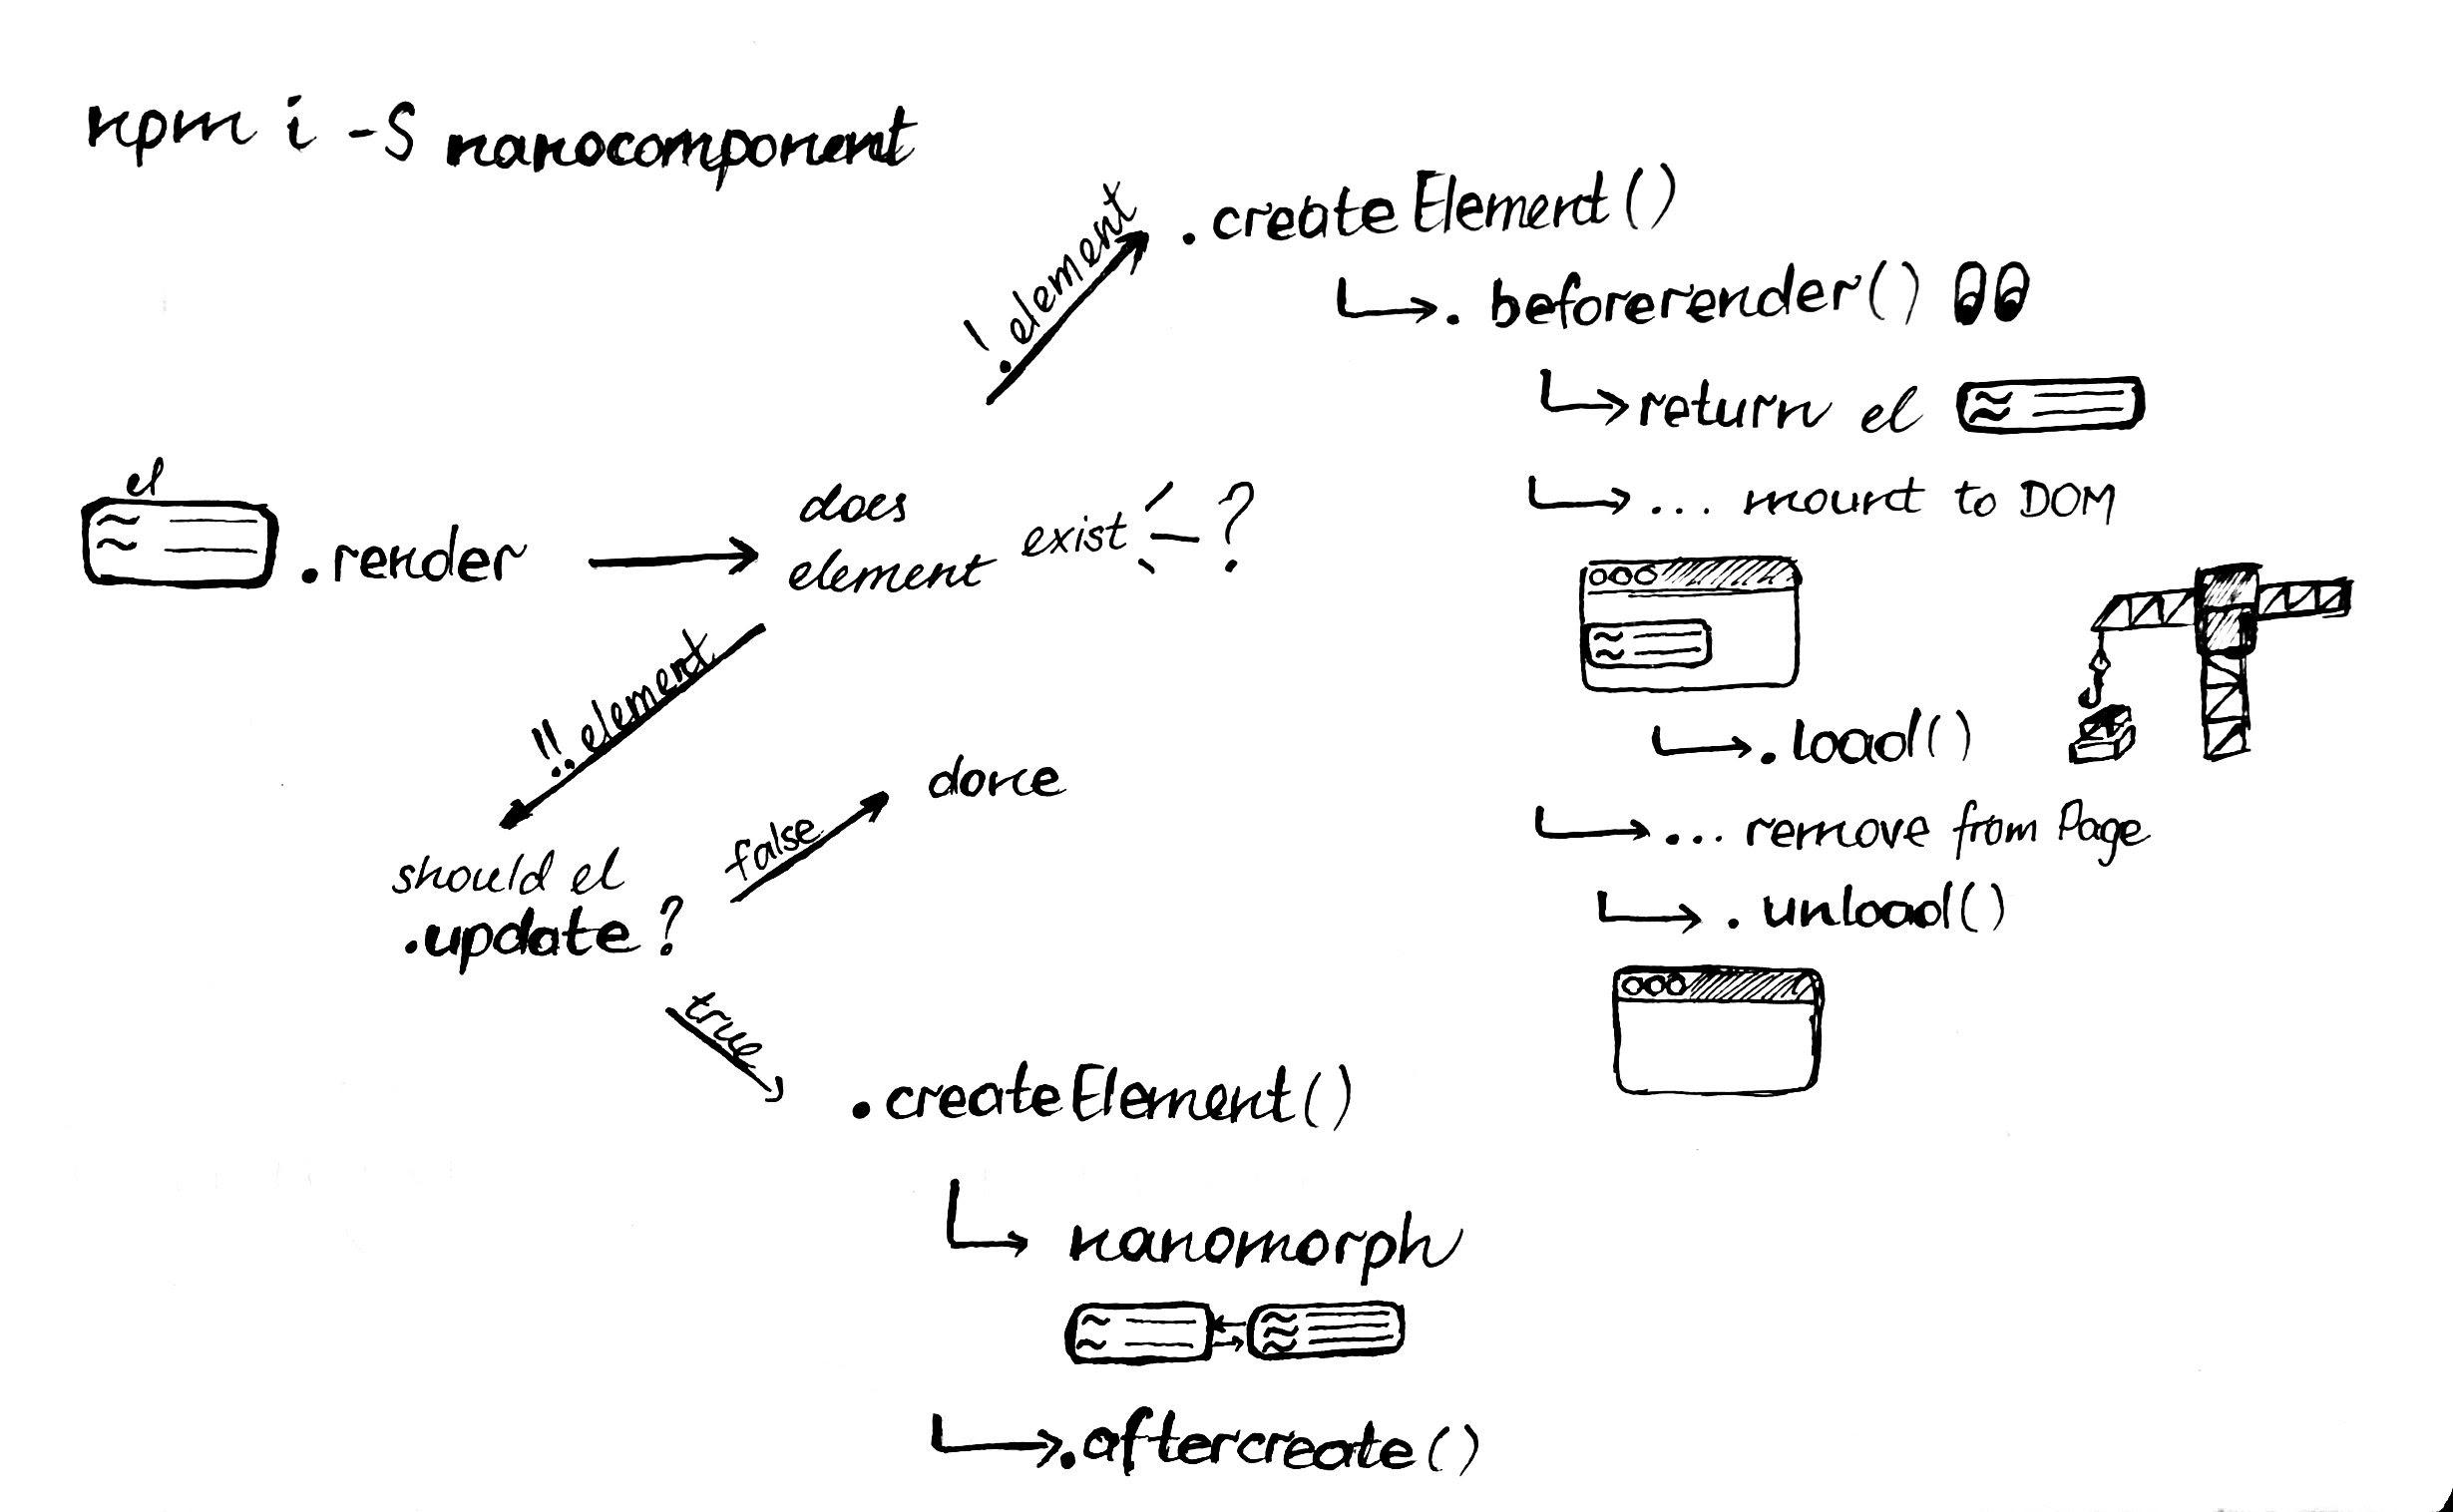 npm i -S nanocomponent
!element
.createElement()
. beforerender()
return el
... mount to DOM
el
.render
does
element exist ?
!!element
.load()
... remove from Page
. unload()
should el
.update ?
false
done
true
.createElement()
nanomorph
.aftercreate()